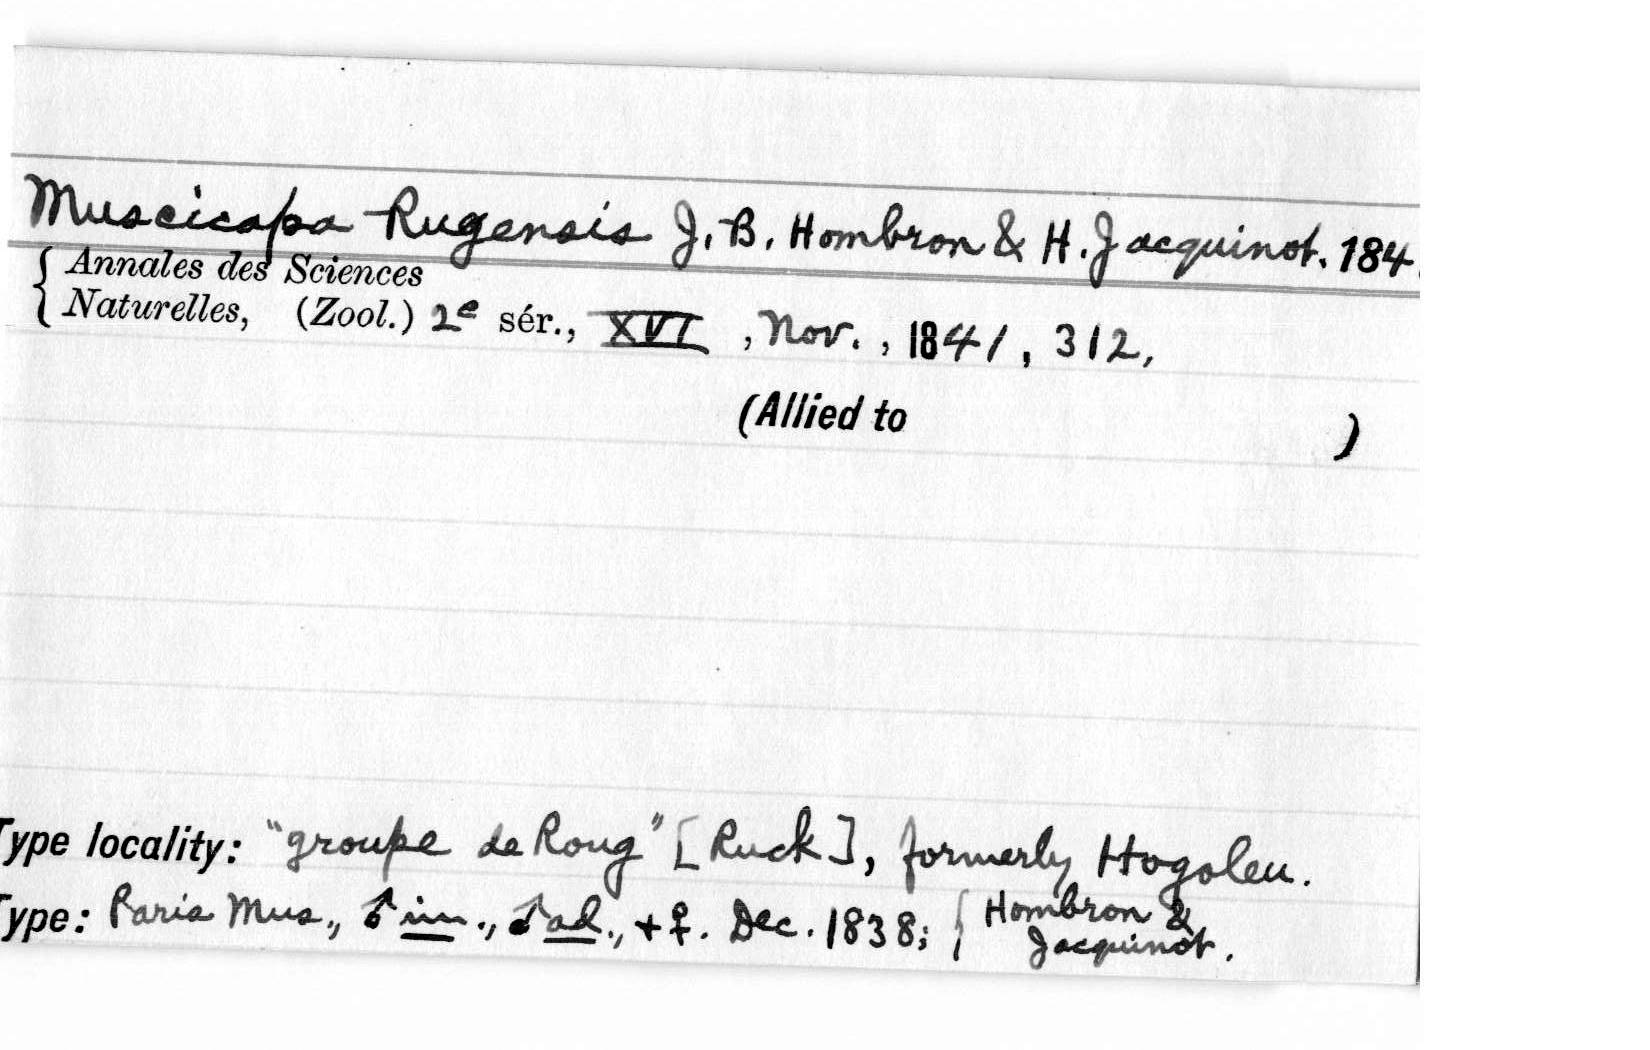 Muscicapa Rugensis J. B. Hombron & H. Jacquinot. 184
{ Annales des Sciences
Naturelles, (Zool.) 2e sér., XVI , Nov. , 1841 , 312,
(Allied to )
Type locality: "groupe de Roug" [Ruck], formerly Hogoleu.
Type: Paris Mus., ♂ im., ♂ ad., + ♀. Dec. 1838; { Hombron &
Jacquinot.